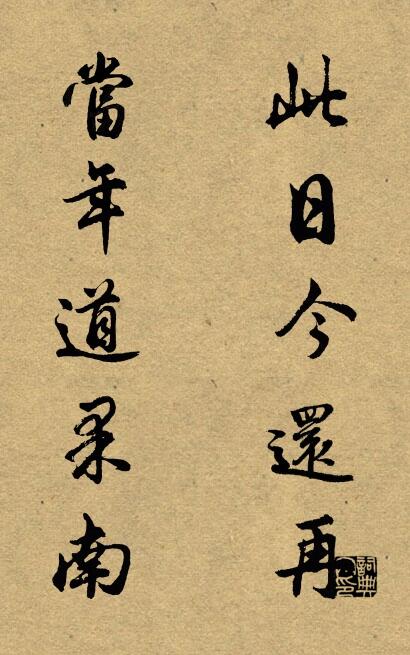 此日今還再
當年道果南
詞典